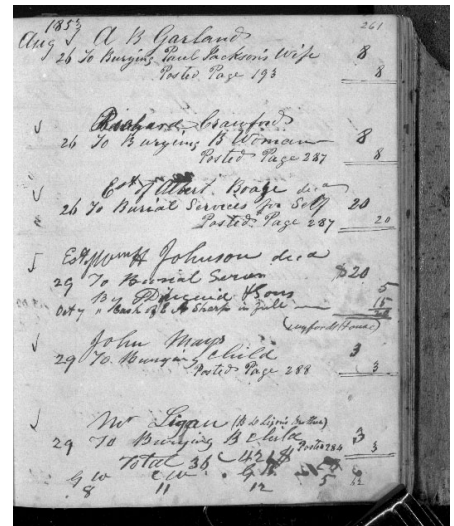 261
1853
Aug A B Garland
26 To Burying Paul Jackson's Wife 8
Posted Page 193 8
Richard Crawford
26 To Burying B Woman 8
Posted Page 287 8
Est of Albert Boage decd
26 To Burial Services for Self 20
Posted Page 287 20
Est of H Johnson decd
29 To Burial $20
By & Sons 5
Oct 7 " Cash of E A Sharp in full 15
John Mays
29 To Burying Child 3
Posted Page 288 3
Mr Ligan
29 To Burying B Child Posted 284 3
3
Total 36
G W C W G B 6
8 11 12 5